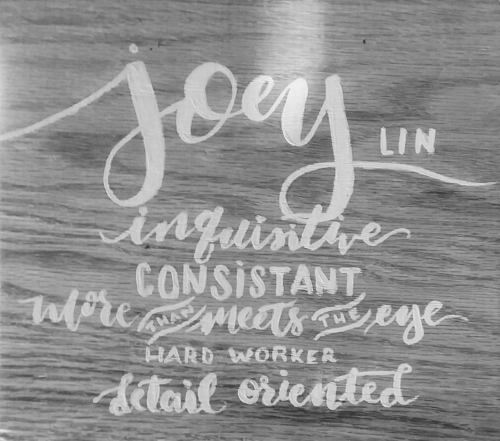 joey
LIN
inquisitive
CONSISTANT
more THAN meets THE eye
HARD WORKER
detail oriented